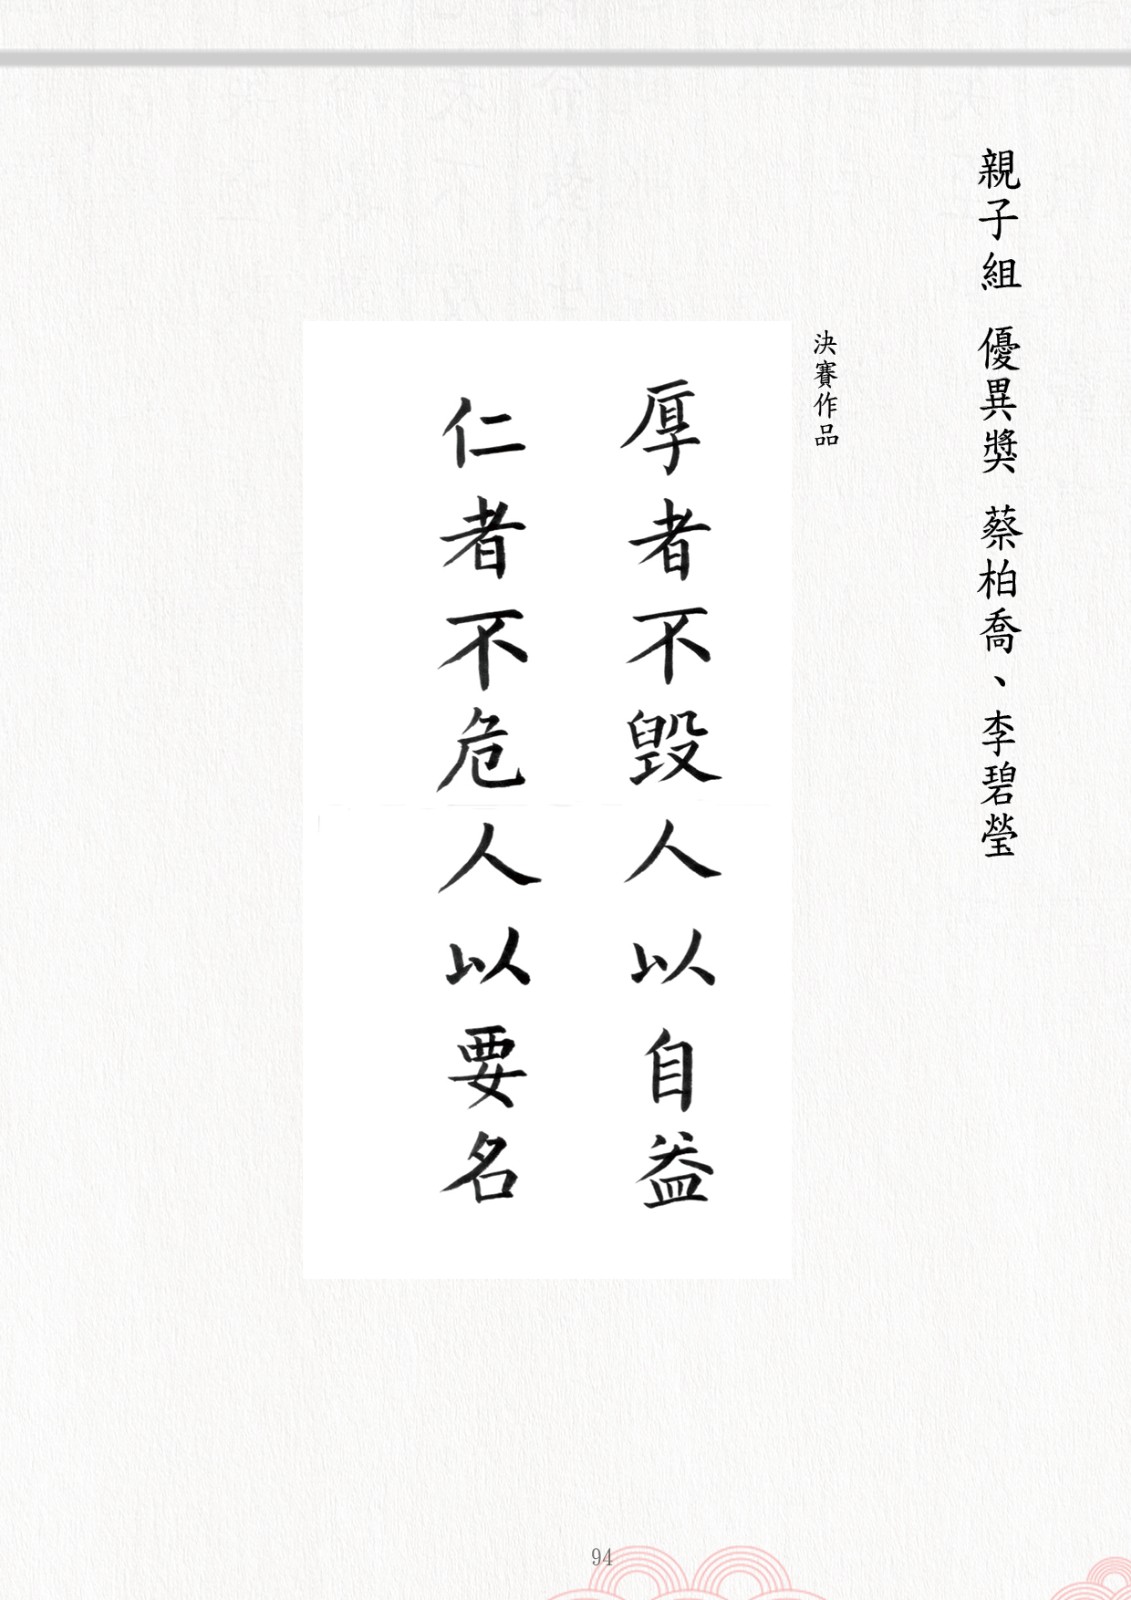 親子組 優異獎 蔡柏喬、李碧瑩
決賽作品
厚者不毀人以自益
仁者不危人以要名
94